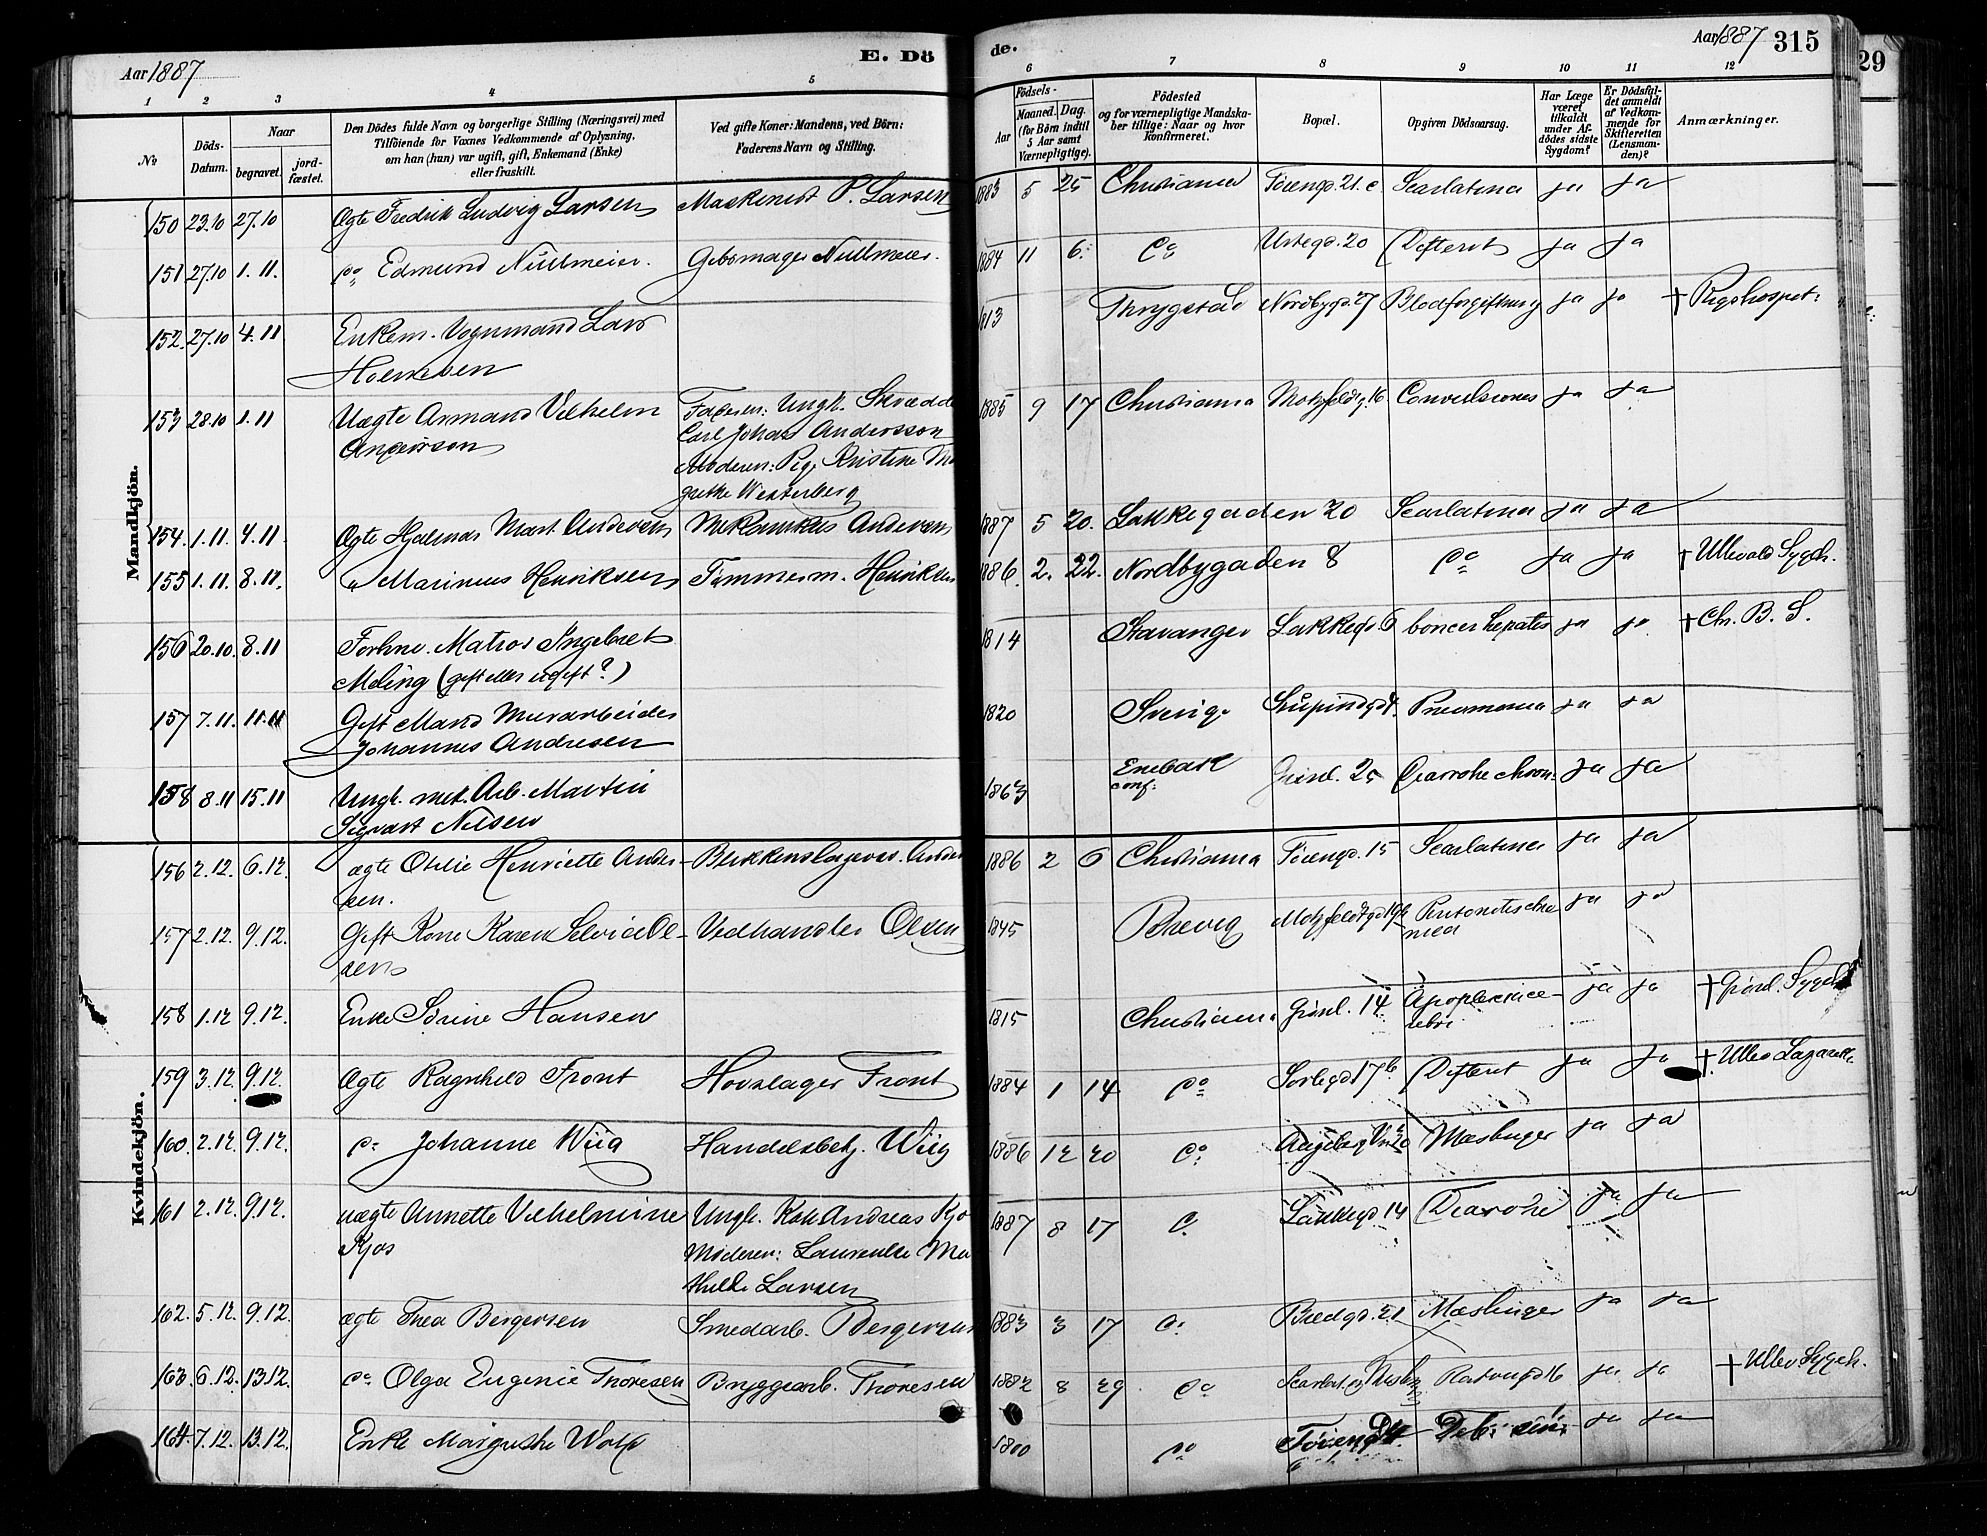 Aar 1887
E. Dö
de.
Aar 1887 315
29
1 2 3 4 5 6 7 8 9 10 11 12
No
Döds-Datum.
Naar
begravet.
jordfæstet.
Den Dödes fulde Navn og borgerlige Stilling (Næringsvei) med
Tilföiende for Voxnes Vedkommende af Oplysning,
om han (hun) var ugift, gift, Enkemand (Enke)
eller fraskilt.
Ved gifte Koner: Mandens, ved Börn:
Faderens Navn og Stilling.
Födsels-
Aar
Maaned. Dag.
(for Börn indtil
5 Aar samt
Værnepligtige).
Födested
og for værnepligtige Mandskaber tillige: Naar og hvor
Konfirmeret.
Bopæl.
Opgiven Dödsaarsag.
Har Læge
været
tilkaldt
under Afdödes sidste
Sygdom?
Er Dödsfaldet anmeldt
af Vedkommende for
Skifteretten
(Lensmanden)?
Anmærkninger.
Mandkjön.
150 23.10 27.10 Ægte Fredrik Ludvig Larsen Maskinist P. Larsen 1883 5 25 Christiania Töiengd. 21.c Scarlatina ja ja
151 27.10 1.11. do Edmund Nullmeier. Gibsmager Nullmeier. 1884 11 6. do Urtegd. 20 Difterit ja ja
152. 27.10 4.11 Enkem. Vognmand Lars 1813 Thrygstad Nordbygd. 27 Blodforgiftning ja ja † Rigshospit:
Holmesen
153 28.10 1.11 Uægte Armand Vilhelm Faderen: Ungk. 1885 9 17 Christiania Motzfeldtg. 16 Convulsiones ja ja
Andersson Carl Johan Andersson
Moderen: Pige Kristine Ma
grethe Westerberg
154. 1.11. 4.11 Ægte Hjalmar Mart. Andersen Mekanikus Andersen 1887 5 20. Lakkegaden 20 Scarlatina ja ja
155 1.11. 8.11. " Marinius Henriksen Tømmerm. Henriksen 1886. 2. 22. Nordbygaden 8 do ja ja † Ullevold Sygeh.
156 20.10. 8.11 Forhv. Matros Ingebret 1814 Stavanger Lakkegd. 6 hepatis ja ja † Chr. B. S.
Meling (gift eller ugift?)
157 7.11. 11.11 Gift Mand Murarbeider 1820 Sverige Pneumonia ja ja
Johannes Andresen
158 8.11 15.11 Ungk. Arb. Martin 1863 Enebak Grönl. 25 Diarrohe chron. ja ja
conf:
Sigvart Nilsen
Kvindekjön.
156 2.12. 6.12. ægte Otilie Henriette Ander- Blikkenslagersv. Ander 1886 2 6 Christiania Töiengd. 15 Scarlatina ja ja
sen.
157 2.12. 9.12. Gift Kone Karen Selvia Ol- Vedhandler Olsen 1845 Brevig Motzfeldtgd 19b ja ja
sen
158 1.12 9.12. Enke Sörine Hansen 1815 Christiania Grönl. 14 Apoplexia ce- ja ja † Grönl. Sygeh.
rebri
159 3.12 9.12. Ægte Ragnhild Front Hovslager Front 1884 1 14 do Sorlegd 17b Difterit ja ja † Ullev. Lazareth.
160. 2.12. 9.12. do Johanne Wiig Handelsbetj. Wiig 1886 12 20 do Mæslinger ja ja
161 2.12. 9.12. uægte Annette Vilhelmine Ungk. Andreas Kjo 1887 8 17 do Lakkegd 14 Diarrohe ja ja
Kjos Moderen: Ma
thilde Larsen
162. 5.12. 9.12. ægte Thea Bergersen Smedarb. Bergersen 1883 3 17 do Bredgd. 21 Mæslinger ja ja
163. 6.12. 13.12. do Olga Eugenie Thoresen Bryggearb. Thoresen 1882 8 29 do ja ja † Ullev Sygeh.
164 7.12. 13.12. Enke Margrethe Wolf 1800 do Deb. sen: ja ja